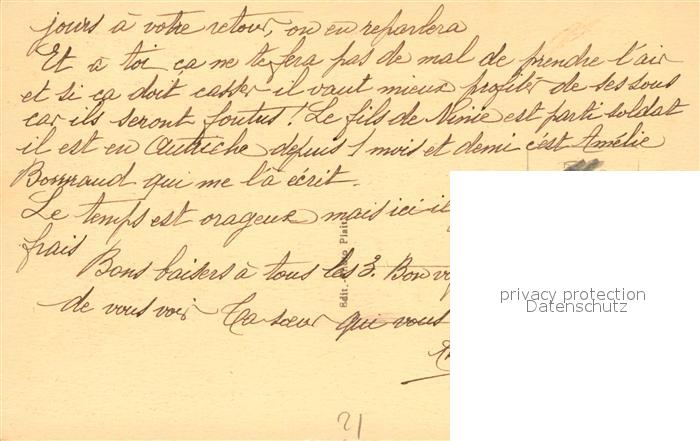 jours à votre retour, on en reparlera
Et à toi ça ne te fera pas de mal de prendre l'air
et si ça doit casser il vaut mieux profiter de ses sous
car ils seront foutus ! Le fils de Ninie est parti soldat
il est en Autriche depuis 1 mois et demi c'est Amélie
Bonnaud qui me l'a écrit.
Le temps est orageux mais ici il
frais
Bons baisers à tous les 3. Bon
de vous voir Ta sœur qui vous
Edit.
21
privacy protection
Datenschutz